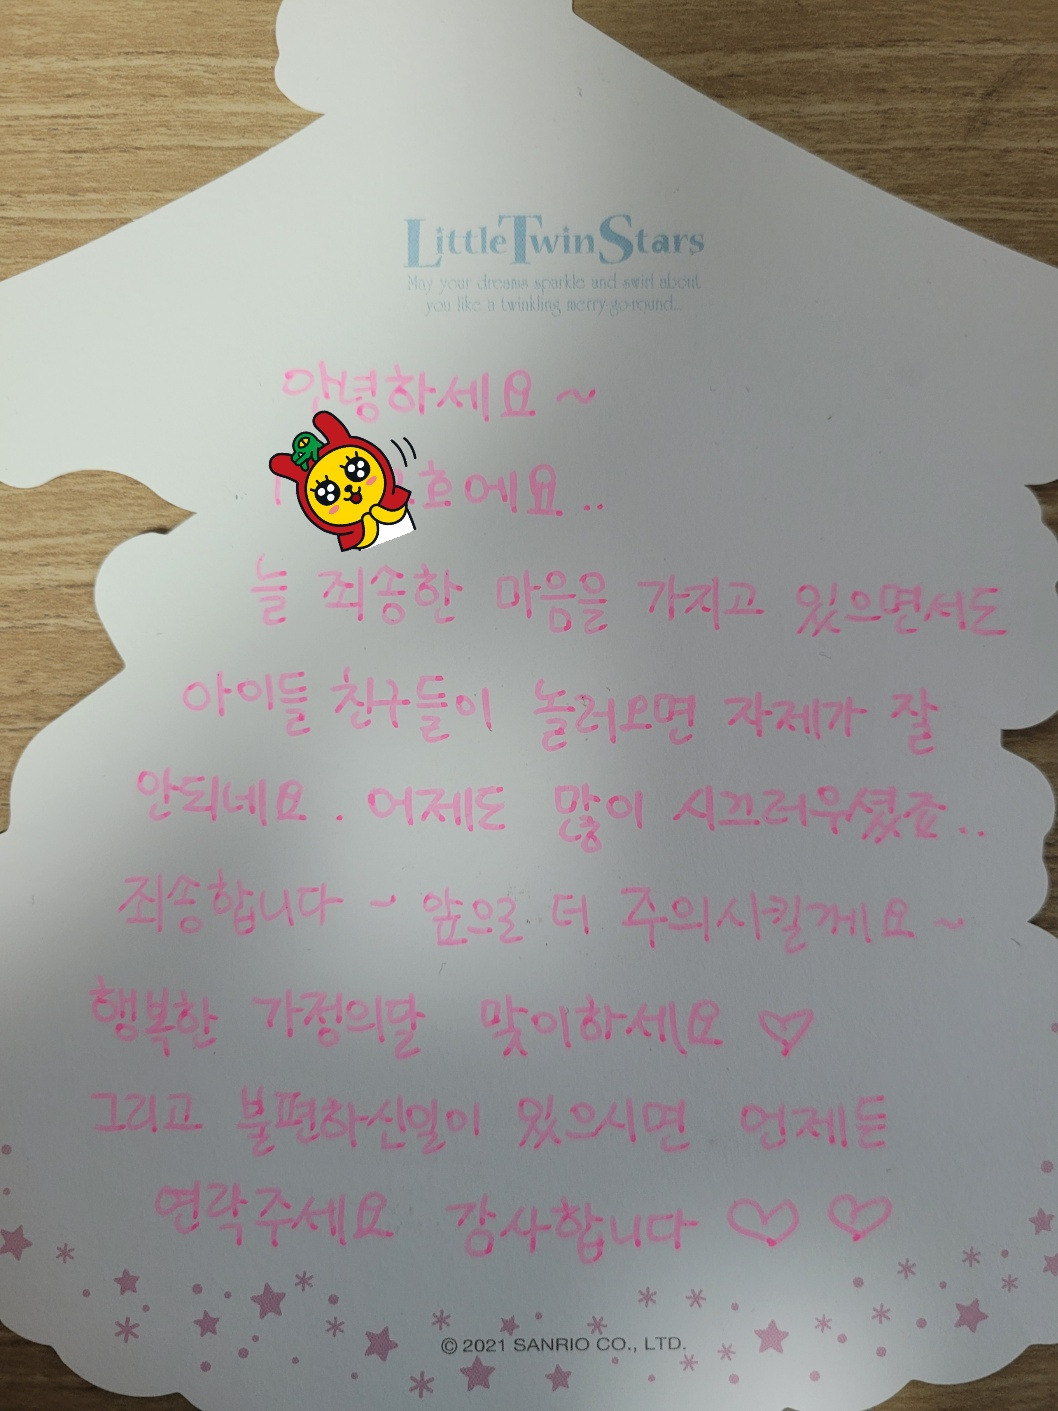 Little Twin Stars
May your dreams sparkle and swirl about
you like a twinkling merry-go-round...
안녕하세요~
호에요..
늘 죄송한 마음을 가지고 있으면서도
아이들 친구들이 놀러오면 자제가 잘
안되네요. 어제도 많이 시끄러우셨죠..
죄송합니다~ 앞으로 더 주의시킬게요~
행복한 가정의달 맞이하세요♡
그리고 불편하신일이 있으시면 언제든
연락주세요 감사합니다♡♡
© 2021 SANRIO CO., LTD.